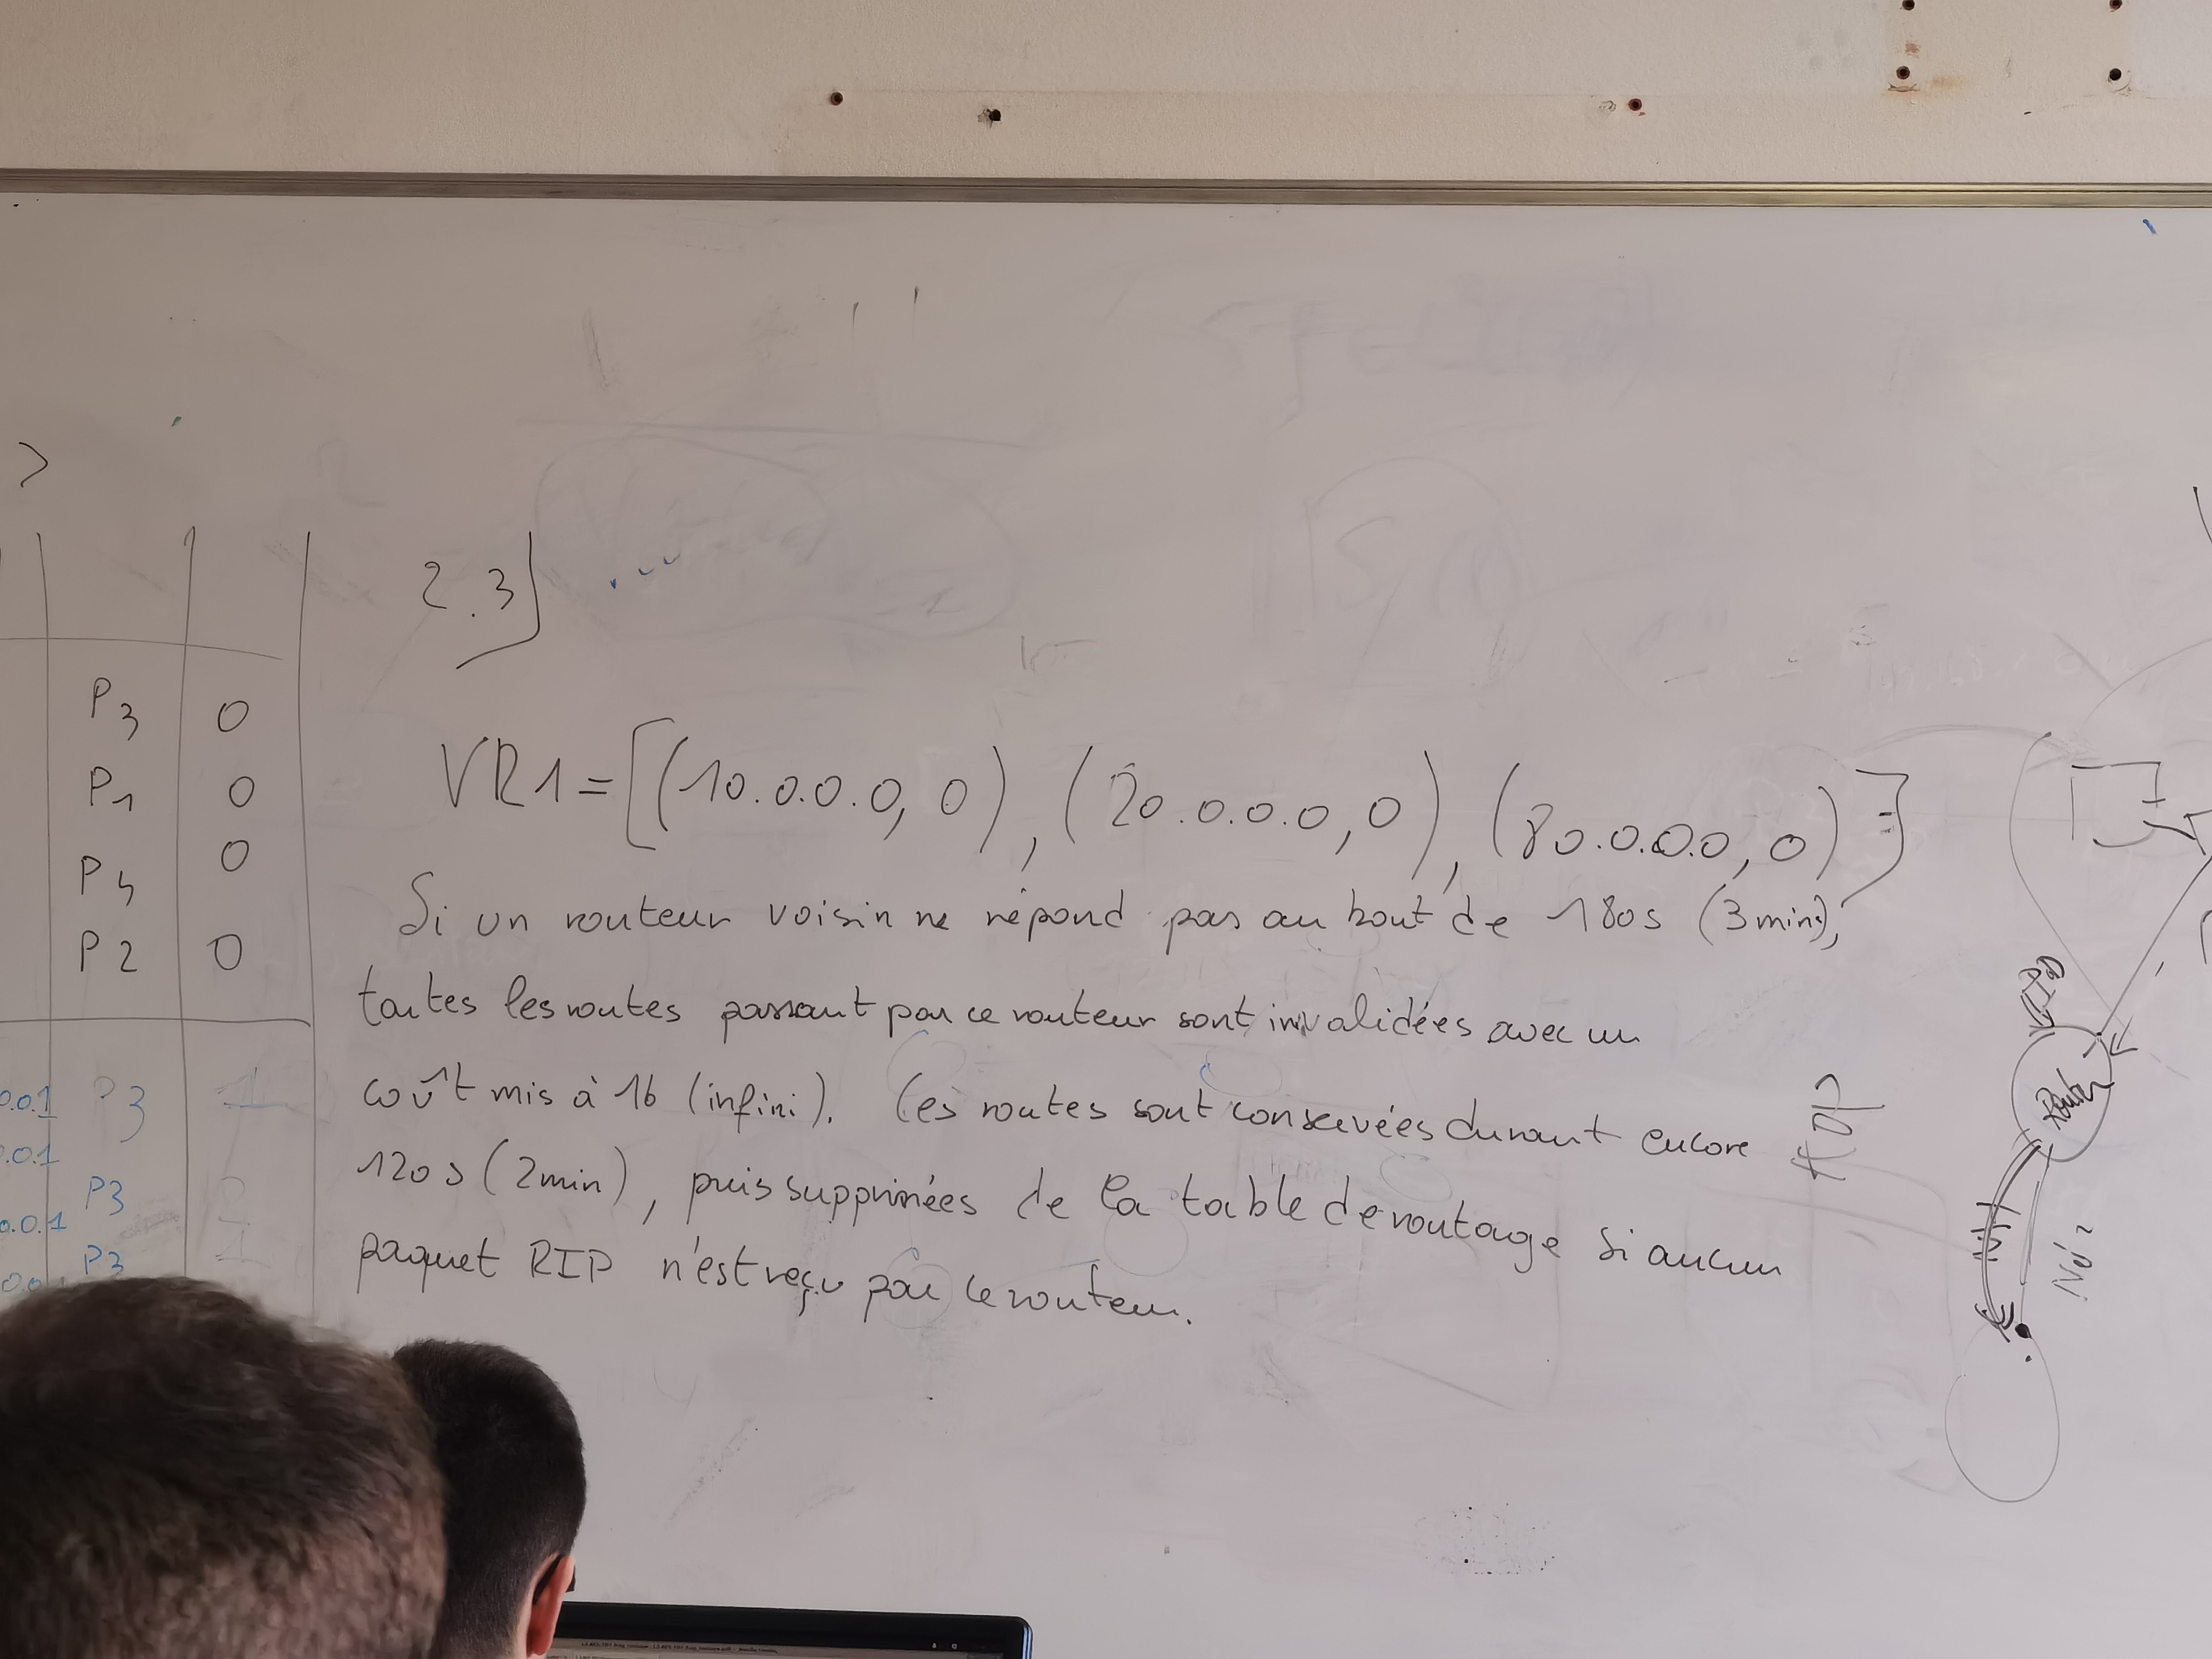 >
2.3)
P3 0
P1 0
P4 0
P2 0
VR1=[(10.0.0.0, 0), (20.0.0.0, 0), (80.0.0.0, 0)]
Si un routeur voisin ne répond pas au bout de 180s (3min),
toutes les routes passant par ce routeur sont invalidées avec un
coût mis à 16 (infini). Ces routes sont conservées durant encore
120s (2min), puis supprimées de la table de routage si aucun
paquet RIP n'est reçu par le routeur.
0.0.1 P3 1
0.0.1
P3
0.0.1
P3 1